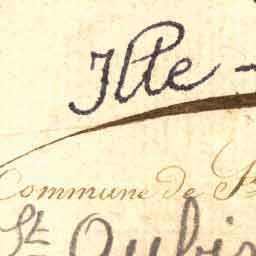 Ille -
Commune de St
St Aubin